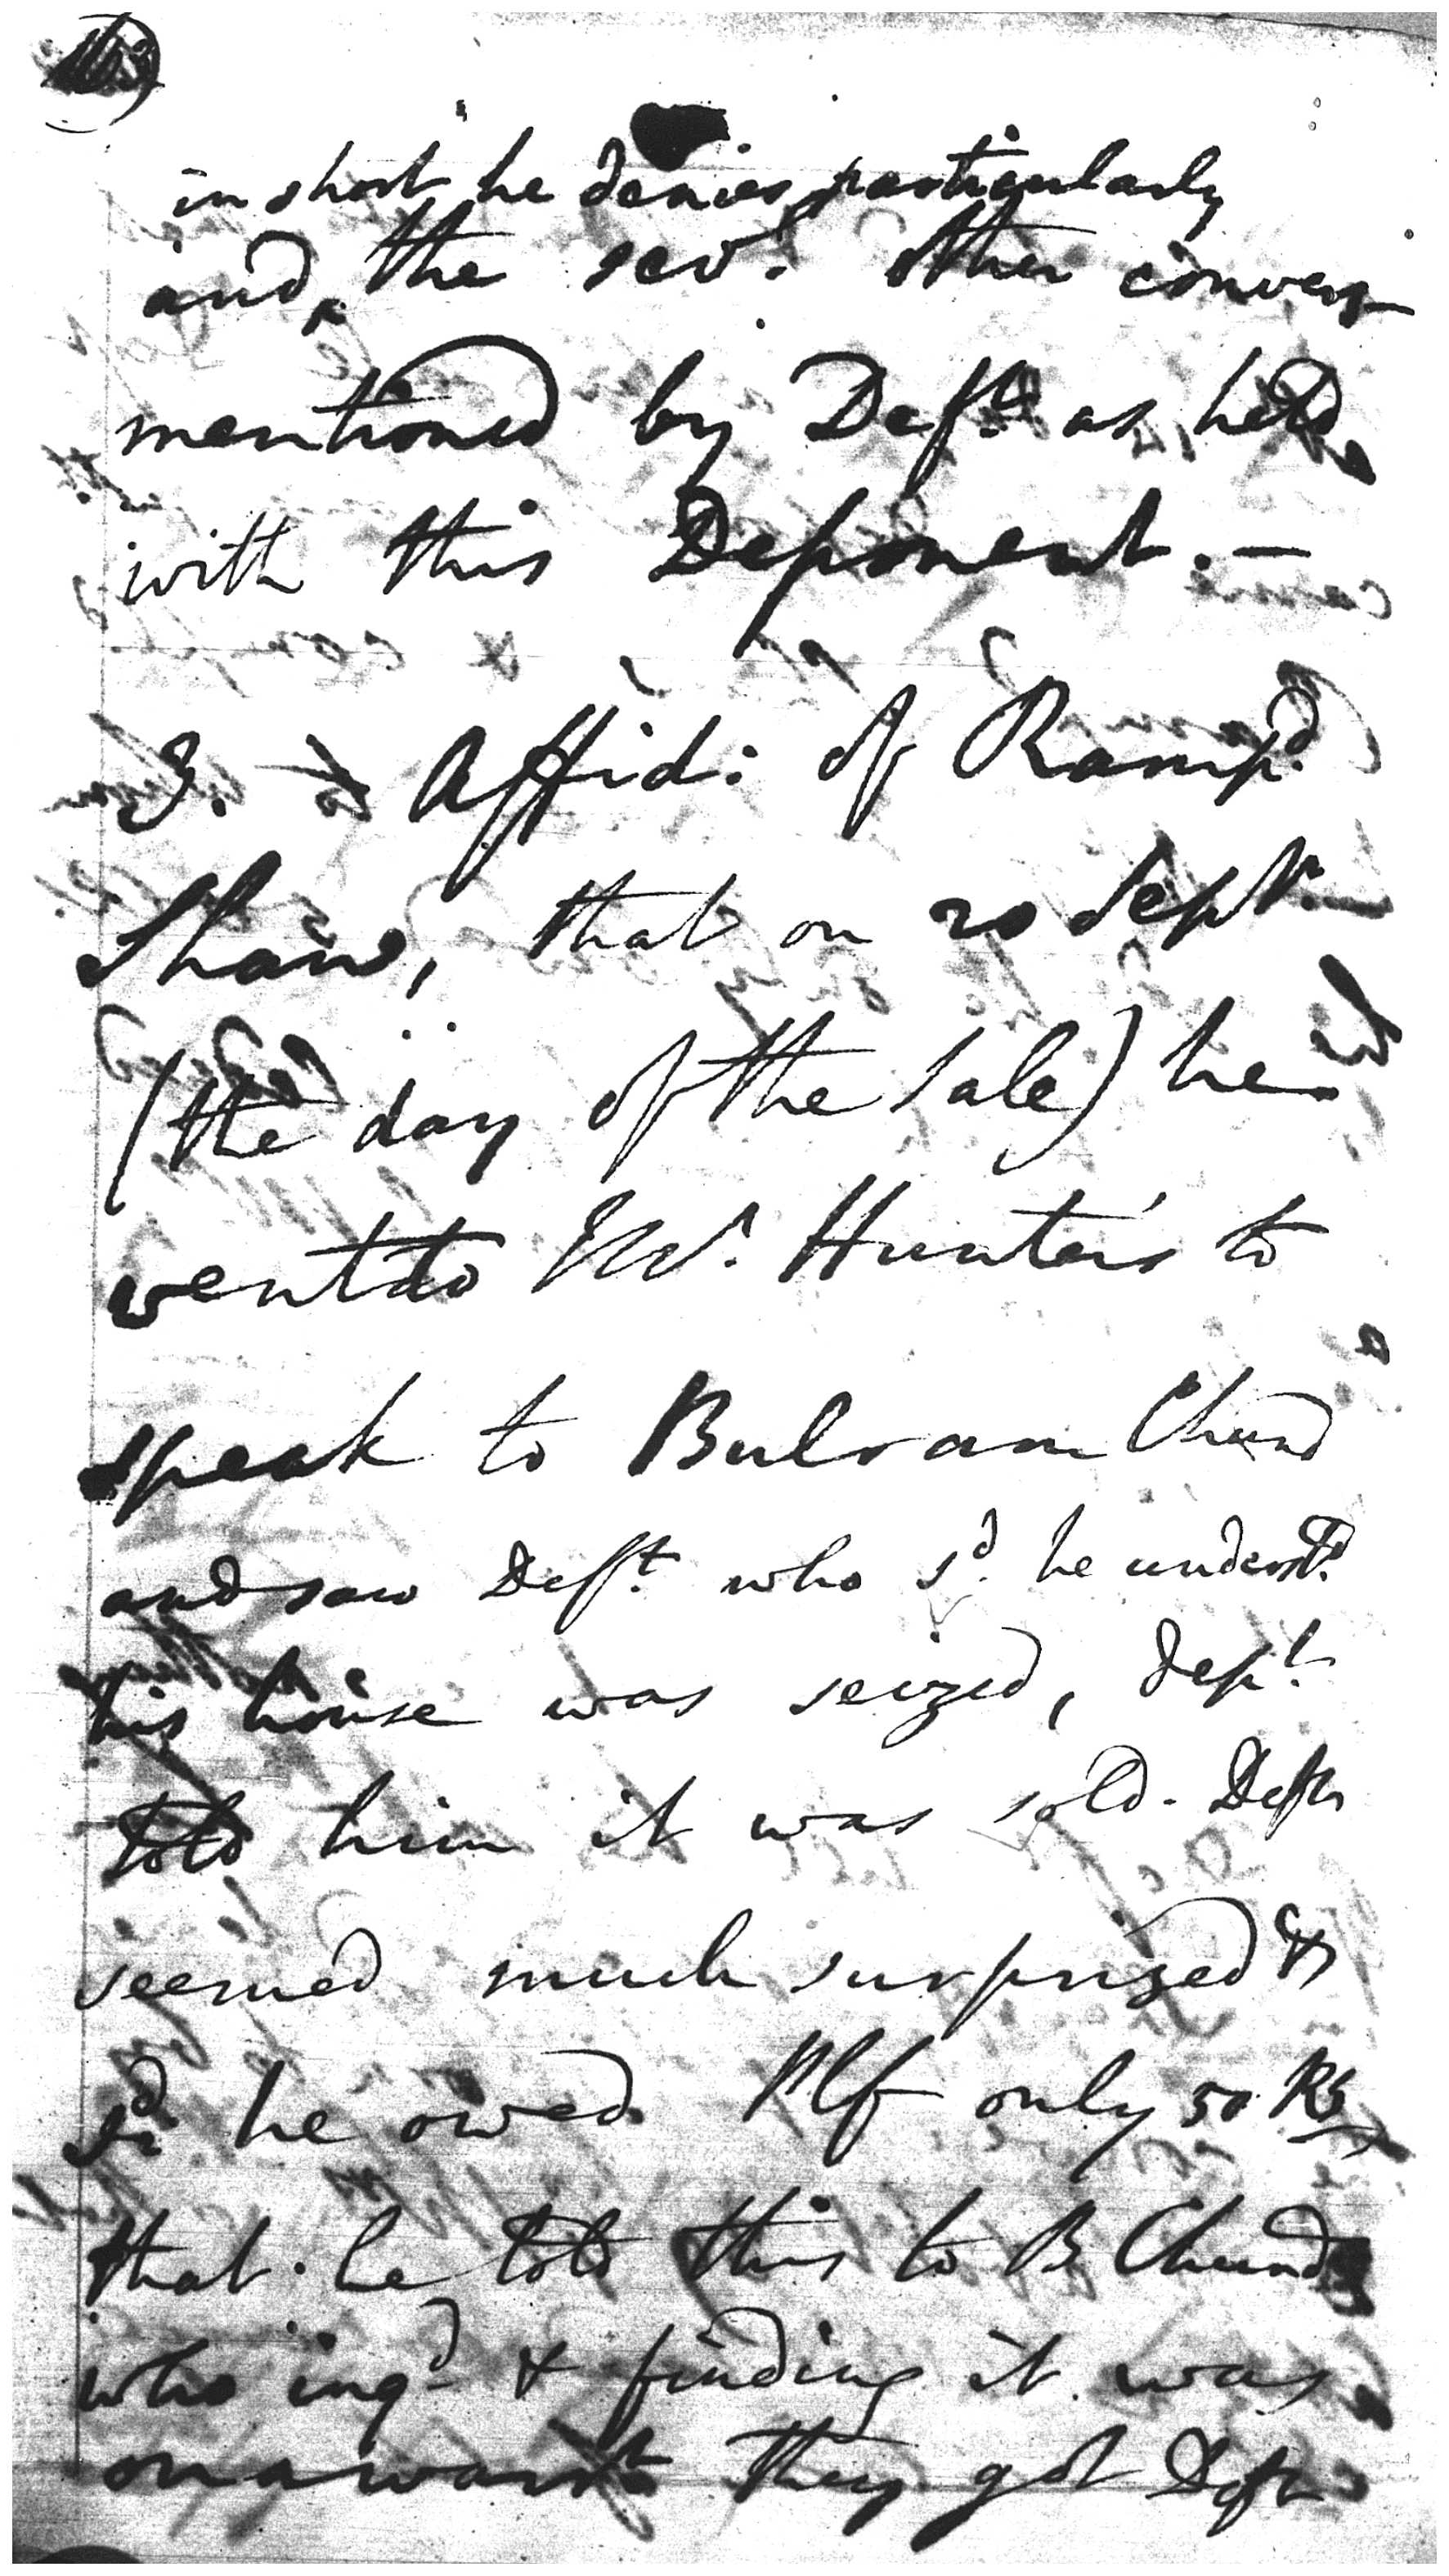 in short he denies particularly
and the sev.l other convers
mentioned by Def.t as held
with this Deponent. —
3. Affid: of Ramp.d
Shaw, that on 20 Sept.
(the day of the Sale) he
went to Mr. Hunter's to
speak to Bulram Chund
and saw Deft. who s.d he underst.d
his house was seized, Dep.t
told him it was sold. Deft
seemed much surprized &
s.d he owed Plf only 50 Rs
that he told this to B Chund
who inq.d & finding it was
on a warr.t they got Deft